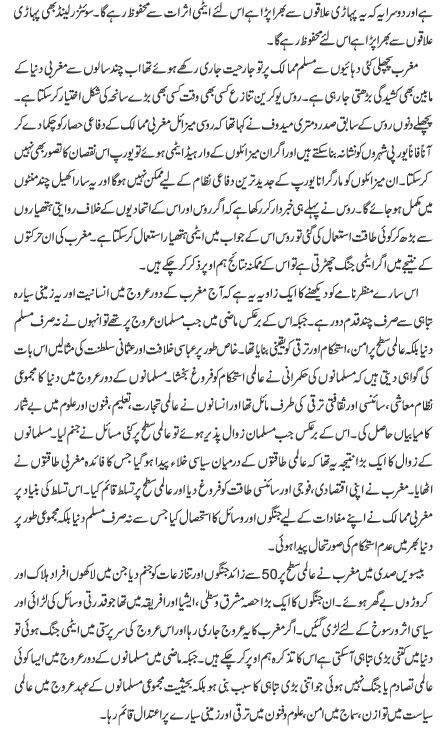 ہے اور دوسرا یہ کہ یہ پہاڑی علاقوں سے بھرا پڑا ہے اس لئے ایٹمی اثرات سے محفوظ رہے گا۔ سوئٹزرلینڈ بھی پہاڑی
علاقوں سے بھرا پڑا ہے اس لئے محفوظ رہے گا۔
مغرب پچھلی کئی دہائیوں سے مسلم ممالک پر تو جارحیت جاری رکھے ہوئے تھا اب چند سالوں سے مغربی دنیا کے
مابین بھی کشیدگی بڑھتی جا رہی ہے۔ روس یوکرین تنازع کسی بھی وقت کسی بھی بڑے سانحہ کی شکل اختیار کر سکتا ہے۔
پچھلے دنوں روس کے سابق صدر دمتری میدوف نے کہا تھا کہ روسی میزائل مغربی ممالک کے دفاعی حصار کو چکما دے کر
آناً فاناً یورپی شہروں کو نشانہ بنا سکتے ہیں اور اگر ان میزائلوں کے وار ہیڈ ایٹمی ہوئے تو یورپ اس نقصان کا تصور بھی نہیں
کر سکتا۔ ان میزائلوں کو مار گرانا یورپ کے جدید ترین دفاعی نظام کے لیے ممکن نہیں ہو گا اور یہ سارا کھیل چند منٹوں
میں مکمل ہو جائے گا۔ روس نے پہلے ہی خبردار کر رکھا ہے کہ اگر روس اور اس کے اتحادیوں کے خلاف روایتی ہتھیاروں
سے بڑھ کر کوئی طاقت استعمال کی گئی تو روس اس کے جواب میں ایٹمی ہتھیار استعمال کر سکتا ہے۔ مغرب کی ان حرکتوں
کے نتیجے میں اگر ایٹمی جنگ چھڑتی ہے تو اس کے ممکنہ نتائج ہم اوپر ذکر کر چکے ہیں۔
اس سارے منظر نامے کو دیکھنے کا ایک زاویہ یہ ہے کہ آج مغرب کے دور عروج میں انسانیت اور یہ زمینی سیارہ
تباہی سے صرف چند قدم دور ہے۔ جبکہ اس کے برعکس ماضی میں جب مسلمان عروج پر تھے تو انہوں نے نہ صرف مسلم
دنیا بلکہ عالمی سطح پر امن، استحکام اور ترقی کو یقینی بنایا تھا۔ خاص طور پر عباسی خلافت اور عثمانی سلطنت کی مثالیں اس بات
کی گواہی دیتی ہیں کہ مسلمانوں کی حکمرانی نے عالمی استحکام کو فروغ بخشا۔ مسلمانوں کے دور عروج میں دنیا کا مجموعی
نظام معاشی، سائنسی اور ثقافتی ترقی کی طرف مائل تھا اور انسانوں نے عالمی تجارت، تعلیم، فنون اور علوم میں بے شمار
کامیابیاں حاصل کی۔ اس کے برعکس جب مسلمان زوال پذیر ہوئے تو عالمی سطح پر کئی مسائل نے جنم لیا۔ مسلمانوں
کے زوال کا ایک بڑا نتیجہ یہ تھا کہ عالمی طاقتوں کے درمیان سیاسی خلاء پیدا ہو گیا جس کا فائدہ مغربی طاقتوں نے
اٹھایا۔ مغرب نے اپنی اقتصادی، فوجی اور سائنسی طاقت کو فروغ دیا اور عالمی سطح پر تسلط قائم کیا۔ اس تسلط کی بنیاد پر
مغربی ممالک نے اپنے مفادات کے لیے جنگوں اور وسائل کا استحصال کیا جس سے نہ صرف مسلم دنیا بلکہ مجموعی طور پر
دنیا بھر میں عدم استحکام کی صورتحال پیدا ہوئی۔
بیسویں صدی میں مغرب نے عالمی سطح پر 50 سے زائد جنگوں اور تنازعات کو جنم دیا جن میں لاکھوں افراد ہلاک اور
کروڑوں بے گھر ہوئے۔ ان جنگوں کا ایک بڑا حصہ مشرق وسطیٰ، ایشیا اور افریقہ میں تھا جو قدرتی وسائل کی لڑائی اور
سیاسی اثر و رسوخ کے لئے لڑی گئیں۔ اگر مغرب کا یہ عروج جاری رہا اور اس عروج کی سرپرستی میں ایٹمی جنگ ہوئی تو
دنیا میں کتنی بڑی تباہی آ سکتی ہے اس کا تذکرہ ہم اوپر کر چکے ہیں۔ جبکہ ماضی میں مسلمانوں کے دور عروج میں ایسا کوئی
عالمی تصادم یا جنگ نہیں ہوئی جو اتنی بڑی تباہی کا سبب بنی ہو بلکہ بحیثیت مجموعی مسلمانوں کے عہد عروج میں عالمی
سیاست میں توازن، سماج میں امن، علوم و فنون میں ترقی اور زمینی سیارے پر اعتدال قائم رہا۔